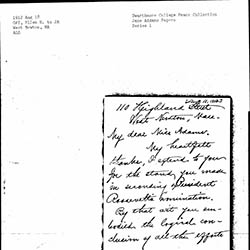 1912 Aug 12
Swarthmore College Peace Collection
to JA
Jane Addams Papers
West Newton, MA
Series 1
ALS
110 Highland Street
West Newton, Mass.
My dear Miss Adams.
My heartfelt
thanks, I extend to you
for the stand you made
in seconding President
Roosevelts nomination.
By that act you em-
bodied the logical con-
clusion of all the efforts